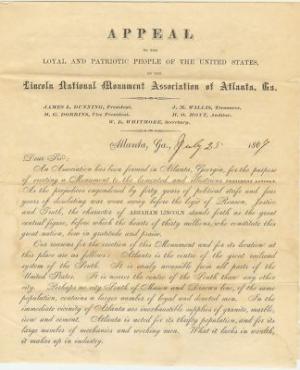 APPEAL
TO THE
LOYAL AND PATRIOTIC PEOPLE OF THE UNITED STATES,
BY THE
Lincoln National Monument Association of Atlanta, Ga.
JAMES L. DUNNING, President.
J. M. WILLIS, Treasurer.
H. O. HOYT, Auditor.
W. R. WHITMORE, Secretary.
Atlanta, Ga., July 25 1867
Dear Sir:
An Association has been formed in Atlanta, Georgia, for the purpose
of erecting a Monument to the lamented and illustrious
As the prejudices engendered by forty years of political strife and four
years of desolating war wear away before the logic of Reason, Justice
and Truth, the character of ABRAHAM LINCOLN stands forth as the great
central figure, before which the hearts of thirty millions, who constitute this
great nation, bow in gratitude and praise.
Our reasons for the erection of this Monument and for its location at
this place are as follows: Atlanta is the centre of the great railroad
system of the South. It is easily accessible from all parts of the
United States. It is nearer the centre of the South than any other
city. Perhaps no city South of Mason and Dixons line, of the same
population, contains a larger number of loyal and devoted men. In the
immediate vicinity of Atlanta are inexhaustible supplies of granite, marble,
iron and cement. Atlanta is noted for its thrifty population, and for its
large number of mechanics and working men. What it lacks in wealth,
it makes up in industry.